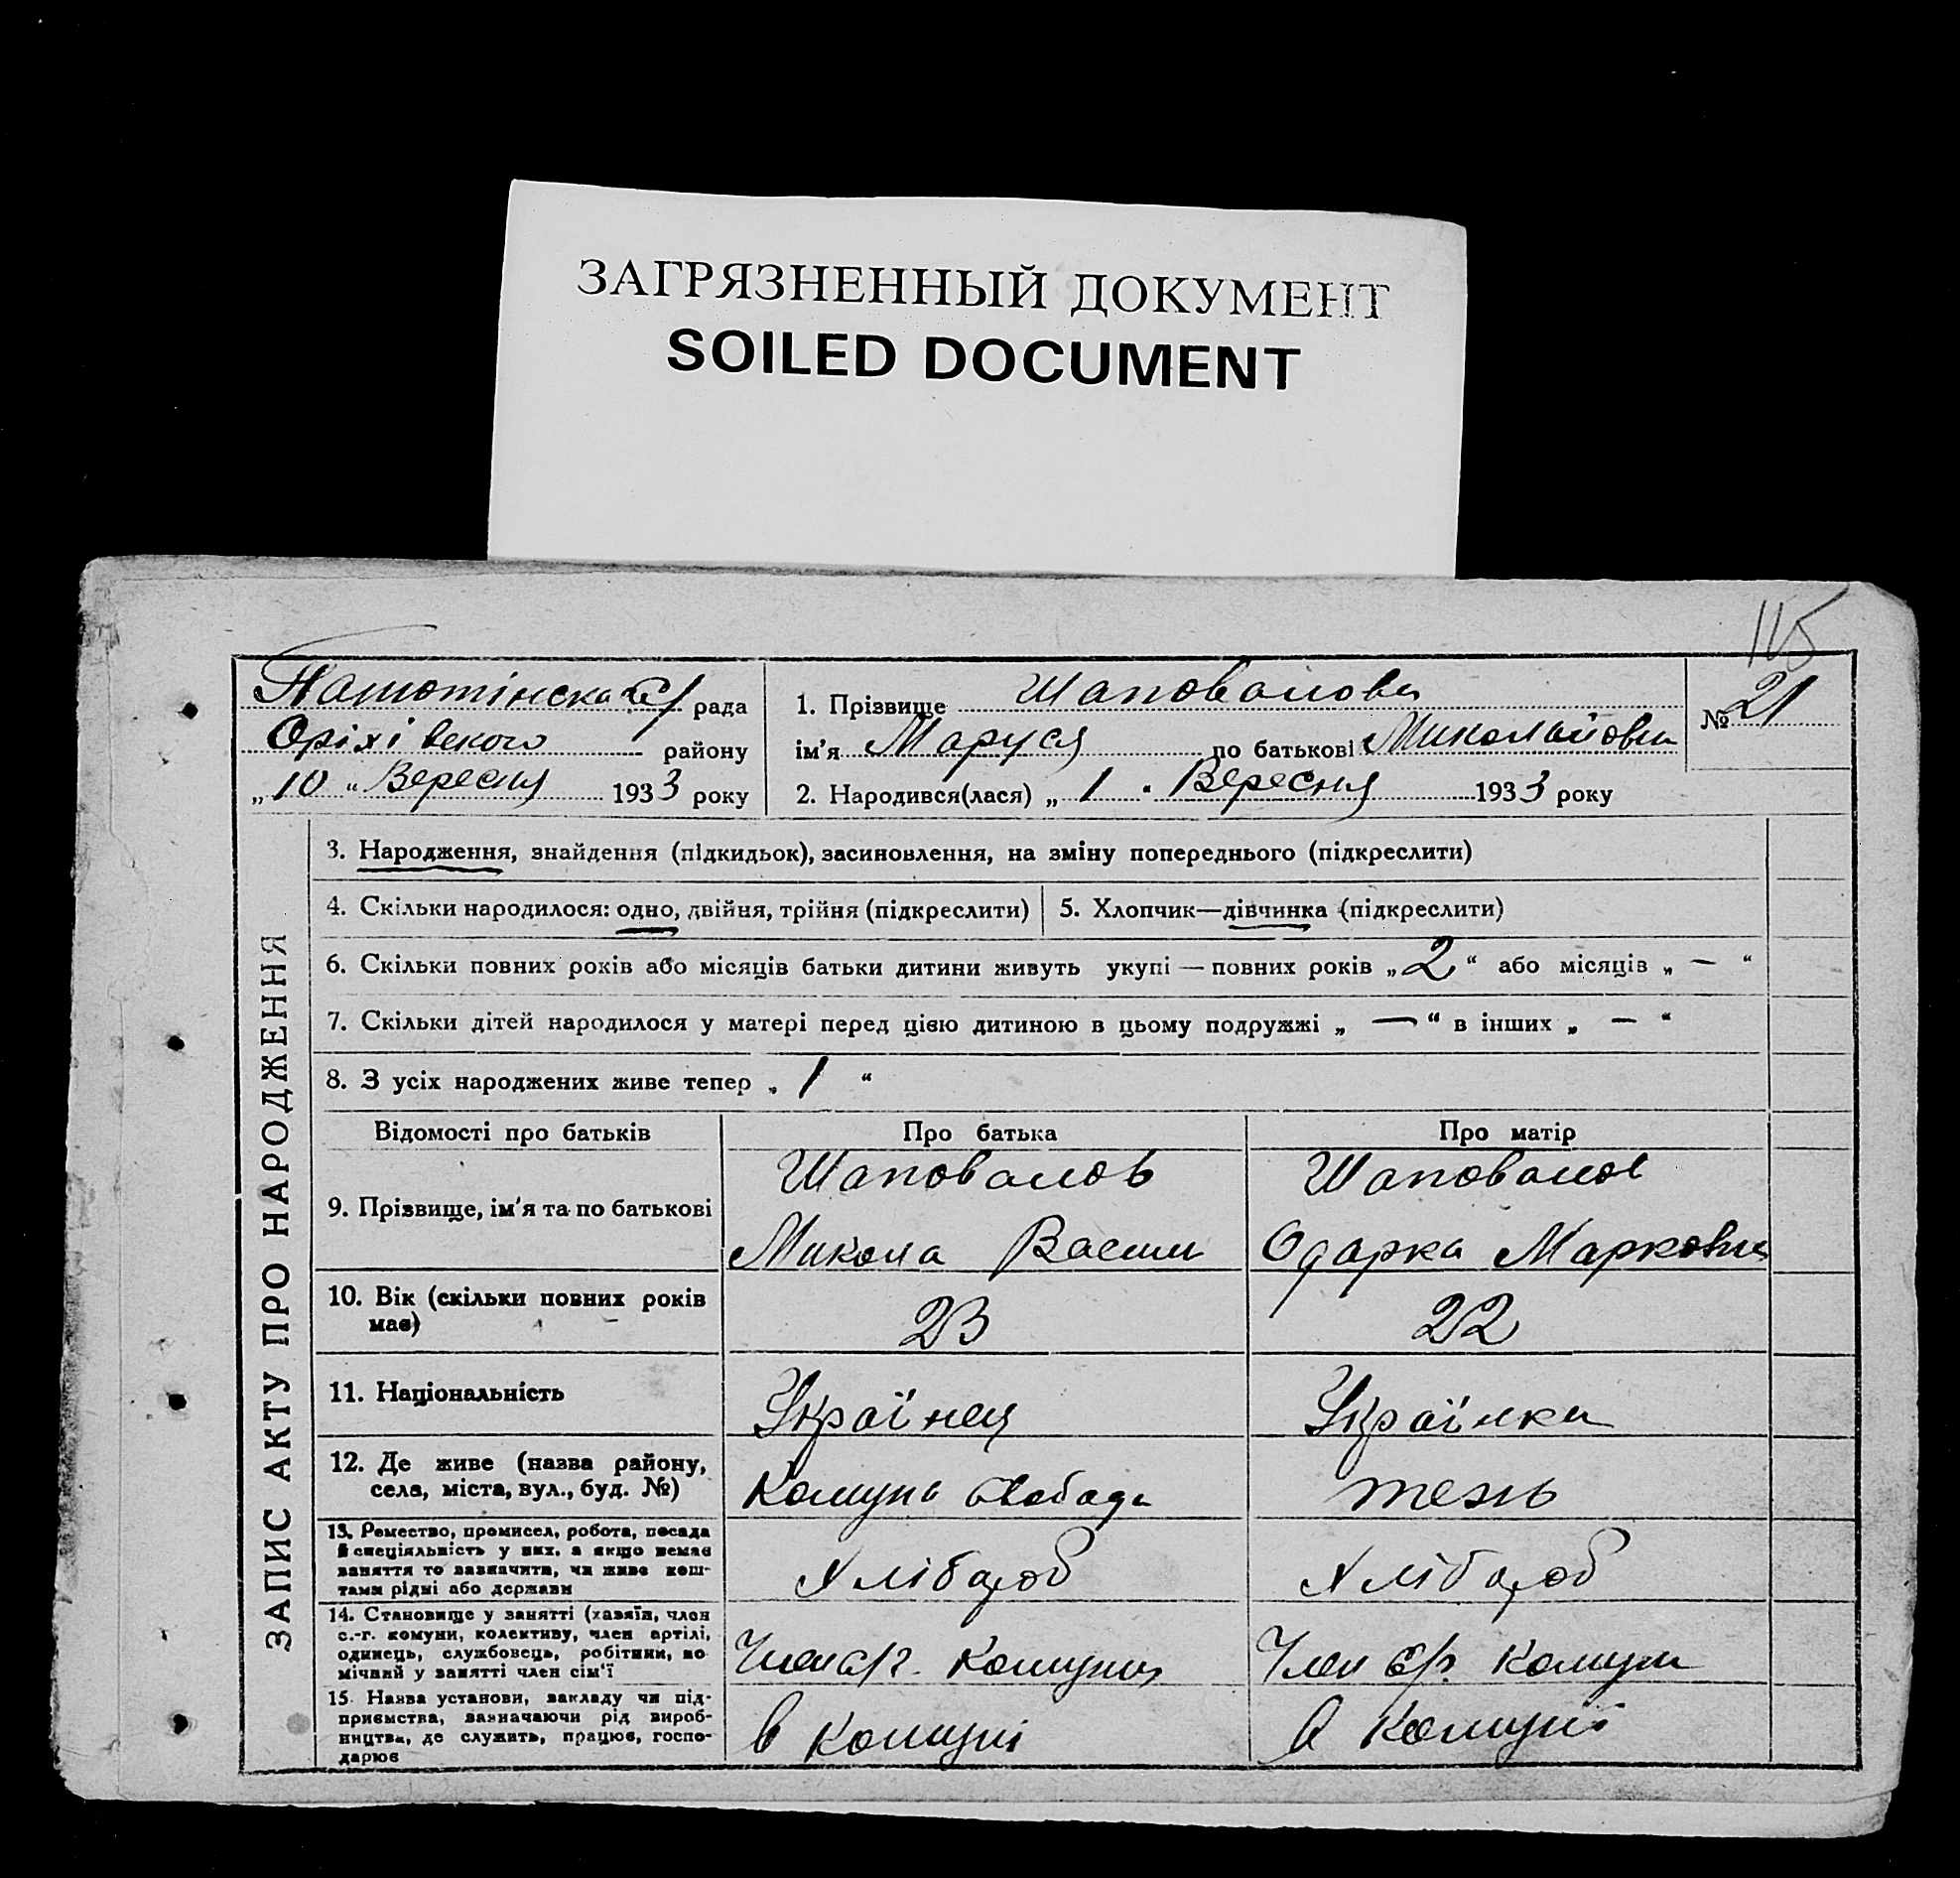 ЗАГРЯЗНЕННЫЙ ДОКУМЕНТ
SOILED DOCUMENT
115
рада
Оріхівского району
„10“ Вересня 1933 року
1. Прізвище Шаповалова
ім'я Маруся по батькові Миколаївна
№ 21
2. Народився(лася) „1. Вересня 1933 року
ЗАПИС АКТУ ПРО НАРОДЖЕННЯ
3. Народження, знайдення (підкидьок), засиновлення, на зміну попереднього (підкреслити)
4. Скільки народилося: одно, двійня, трійня (підкреслити)
5. Хлопчик—дівчинка (підкреслити)
6. Скільки повних років або місяців батьки дитини живуть укупі — повних років „2“ або місяців „ — “
7. Скільки дітей народилося у матері перед цією дитиною в цьому подружжі „ — “ в інших „ — “
8. З усіх народжених живе тепер „ 1 “
Відомості про батьків
Про батька
Про матір
9. Прізвище, ім'я та по батькові
Шаповалов
Микола Васили
Шаповалов
Одарка Марковна
10. Вік (скільки повних років
має)
23
22
11. Національність
Українец
Українка
12. Де живе (назва району,
села, міста, вул., буд. №)
Комуна Свобода
тежь
13. Ремество, промисел, робота, посада
й спеціяльність у них, а якщо немає
заняття то зазначити, чи живе кош-
тами рідні або держави
Хлібороб
Хлібороб
14. Становище у занятті (хазяїн, член
с.-г. комуни, колективу, член артілі,
одинець, службовець, робітник, по
мічний у занятті член сім'ї
Член с/г. Комуни
Член с/г. Комуни
15. Назва установи, закладу чи під-
приємства, зазначаючи рід вироб-
ництва, де служить, працює, госпо-
дарює
в Комуні
в Комуні